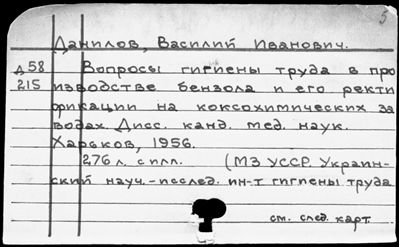 5
Данилов, Василий Иванович.
Д58 Вопросы гигиены труда в про
215 изводстве бензола и его ректи
фикации на коксохимических за
водах. Дисс. канд. мед. наук.
Харьков, 1956.
276 л. с илл. (МЗ УССР. Украин-
ский науч.-исслед. ин-т гигиены труда
см. след. карт.